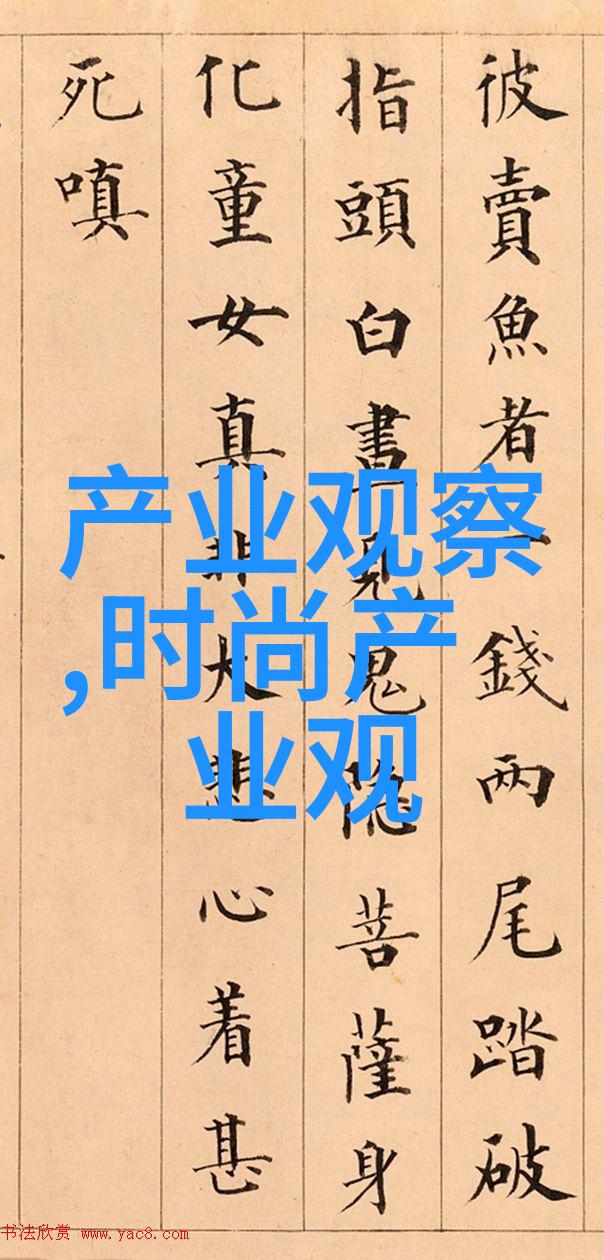 彼賣魚者一錢兩尾踏破
指頭白晝見鬼隐菩薩身
化童女真非大悲心着甚
死嗔
产业观察
,时尚产
业观
书法欣赏 www.yac8.com